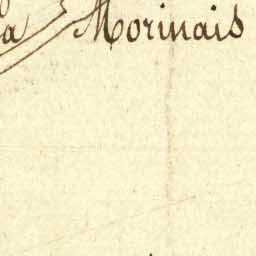 a Morinais